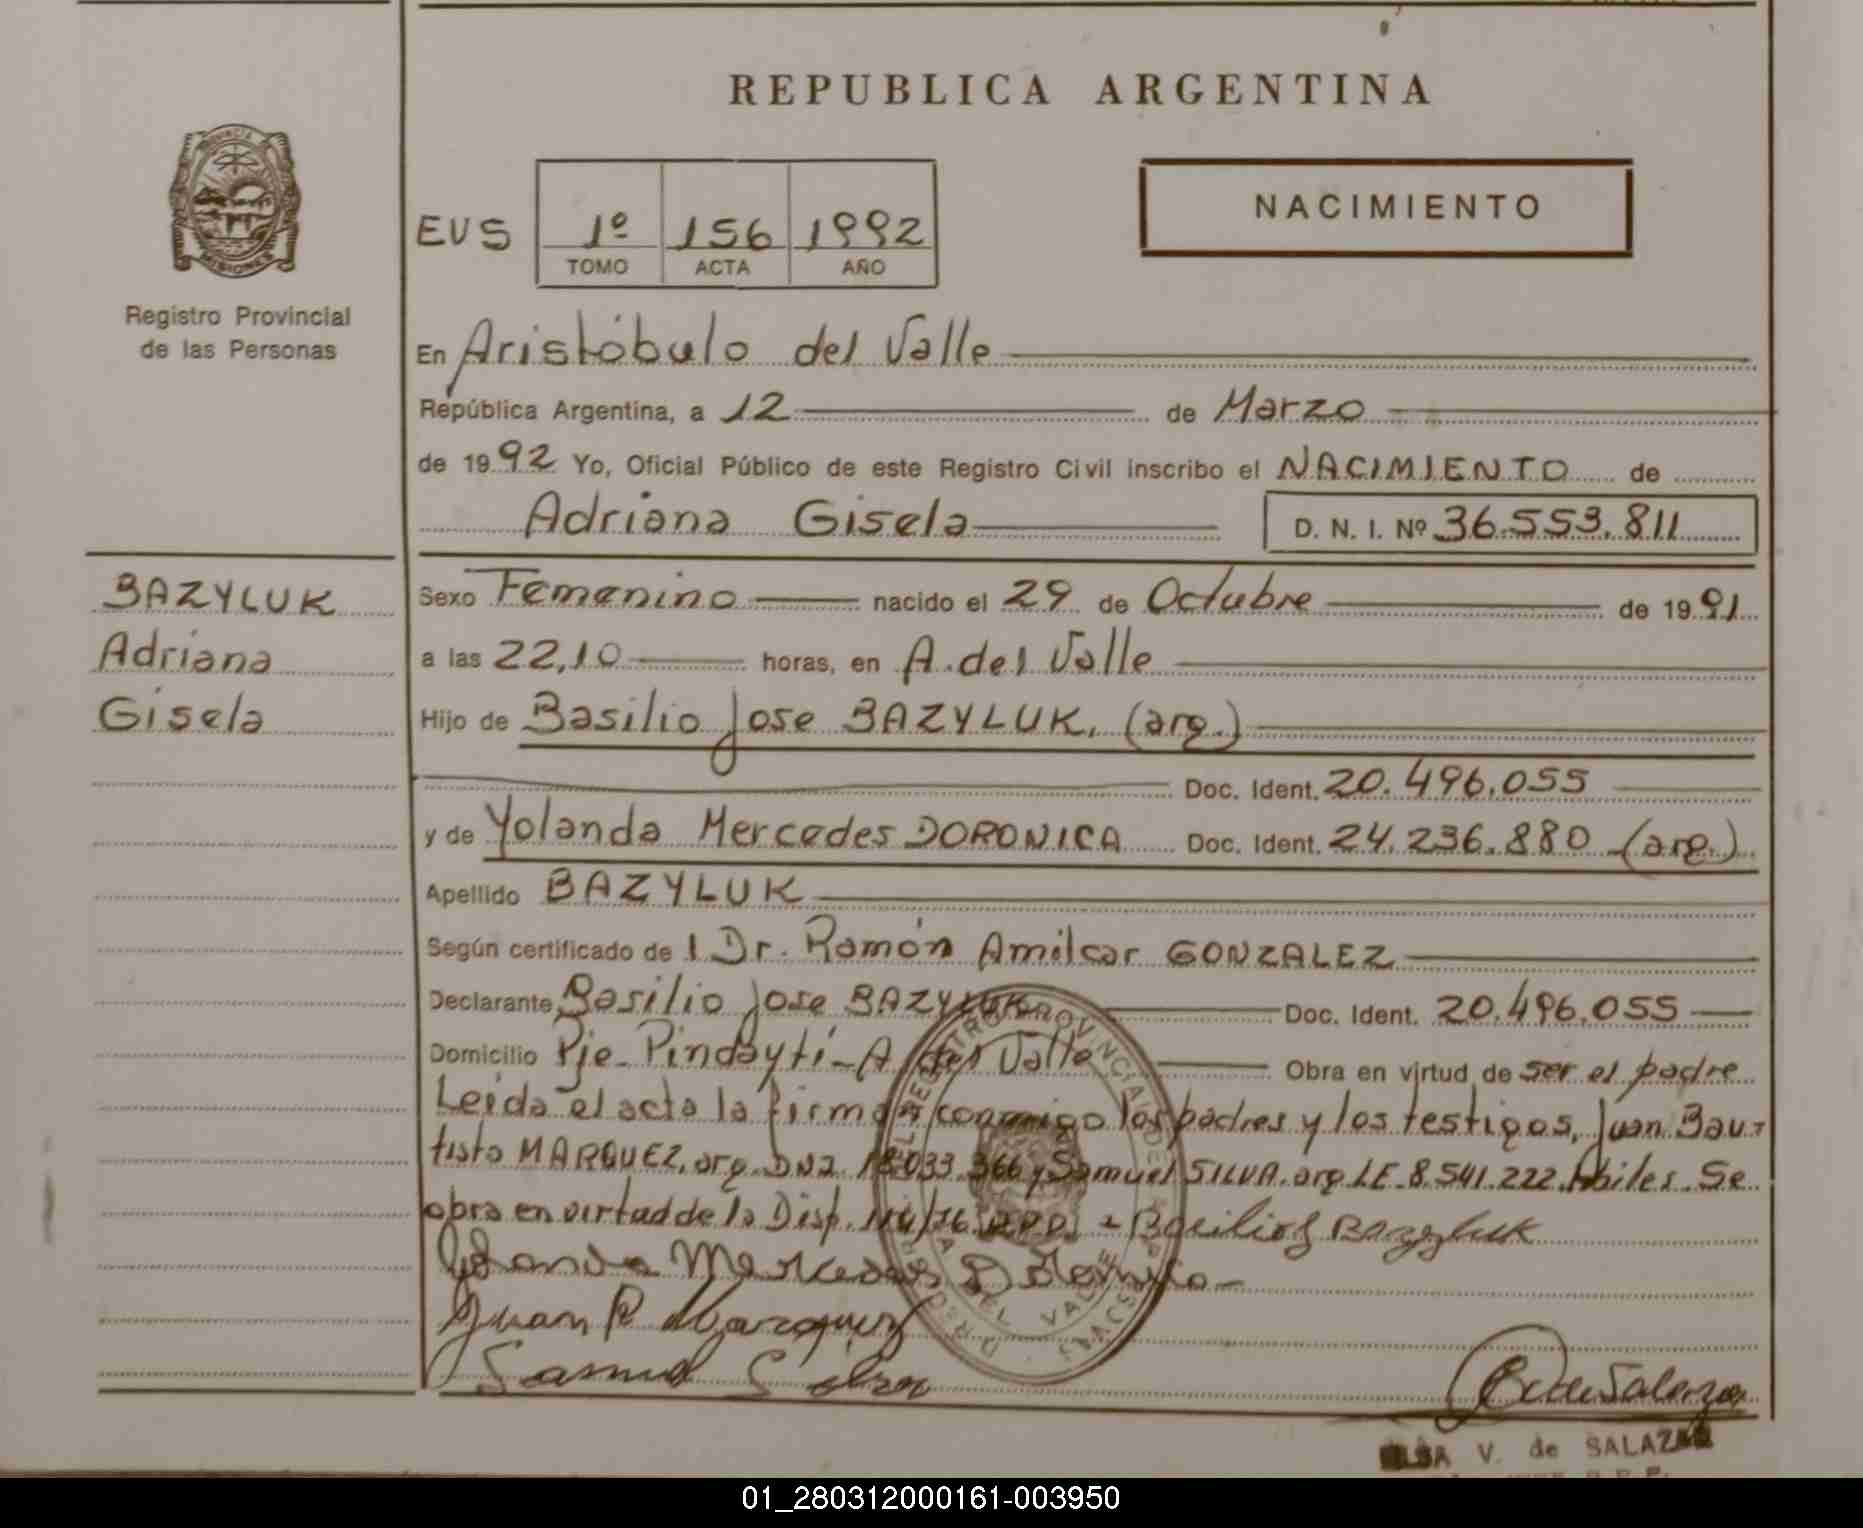 REPUBLICA ARGENTINA
PROVINCIA
MISIONES
Registro Provincial
de las Personas
NACIMIENTO
EVS 1º 156 1992
TOMO ACTA AÑO
En Aristóbulo del Valle
República Argentina, a 12 de Marzo
de 1992 Yo, Oficial Público de este Registro Civil inscribo el NACIMIENTO de
Adriana Gisela D. N. I. Nº 36.553.811
BAZYLUK
Adriana
Gisela
Sexo Femenino nacido el 29 de Octubre de 1991
a las 22,10 horas, en A. del Valle
Hijo de Basilio Jose BAZYLUK. (arg.)
Doc. Ident. 20.496.055
y de Yolanda Mercedes DORONICA Doc. Ident. 24.236.880 (arg.)
Apellido BAZYLUK
Según certificado de l Dr. Ramón Amilcar GONZALEZ
Declarante Basilio Jose BAZYLUK Doc. Ident. 20.496.055
Domicilio Pje. Pindaytí - A. del Valle Obra en virtud de ser el padre
Leida el acta la firman conmigo los padres y los testigos, Juan Bau-
tista MARQUEZ, arg. DNI 18.033.366 y Samuel SILVA. arg. LE. 8.541.222. hábiles. Se
obra en virtud de la Disp. Basilio J Bazyluk
Yolanda Mercedes
Juan B Marquez
Samuel Silva
de Salazar
V. de SALAZAR
01_280312000161-003950